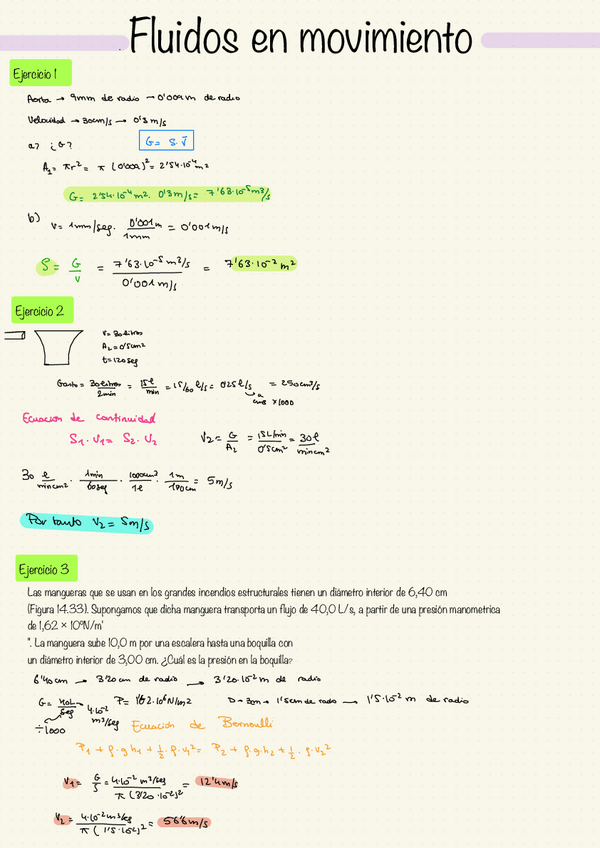 Fluidos en movimiento
Ejercicio 1
Aorta → 9mm de radio → 0'009m de radio
Velocidad → 30cm/s → 0'3 m/s
a) ¿G? G = S.v̄
A₁ = πr² = π (0'009)² = 2'54·10⁻⁴ m²
G = 2'54·10⁻⁴ m² · 0'3 m/s = 7'63·10⁻⁵ m³/s
b) v = 1mm/seg · 0'001m / 1mm = 0'001 m/s
S = G / v = 7'63·10⁻⁵ m³/s / 0'001 m/s = 7'63·10⁻² m²
Ejercicio 2
V = 30 litros
A₂ = 0'5cm²
t = 120 seg
Gasto = 30 litros / 2min = 15 l / min = 15/60 l/s = 0'25 l/s = 250cm³/s
x1000
Ecuación de continuidad
S₁ · V₁ = S₂ · V₂ V₂ = G / A₂ = 15L/min / 0'5cm² = 30 l / min cm²
30 l / min cm² · 1min / 60seg · 1000cm³ / 1l · 1m / 100cm = 5 m/s
Por tanto V₂ = 5m/s
Ejercicio 3
Las mangueras que se usan en los grandes incendios estructurales tienen un diámetro interior de 6,40 cm
(Figura 14.33). Supongamos que dicha manguera transporta un flujo de 40,0 L/s, a partir de una presión manometrica
de 1,62 × 10⁶N/m'
". La manguera sube 10,0 m por una escalera hasta una boquilla con
un diámetro interior de 3,00 cm. ¿Cuál es la presión en la boquilla?
6'40cm → 3'20 cm de radio → 3'20·10⁻² m de radio
G = 40L / seg → 4·10⁻² m³/seg P = 1'62·10⁶ N/m² D → 3cm → 1'5cm de radio → 1'5·10⁻² m de radio
÷1000
Ecuación de Bernoulli
P₁ + ρ·g·h₁ + 1/2·ρ·v₁² = P₂ + ρ·g·h₂ + 1/2·ρ·v₂²
V₁ = G / S = 4·10⁻² m³/seg / π (3'20·10⁻²)² = 12'4m/s
V₂ = 4·10⁻² m³/seg / π (1'5·10⁻²)² = 56'6 m/s